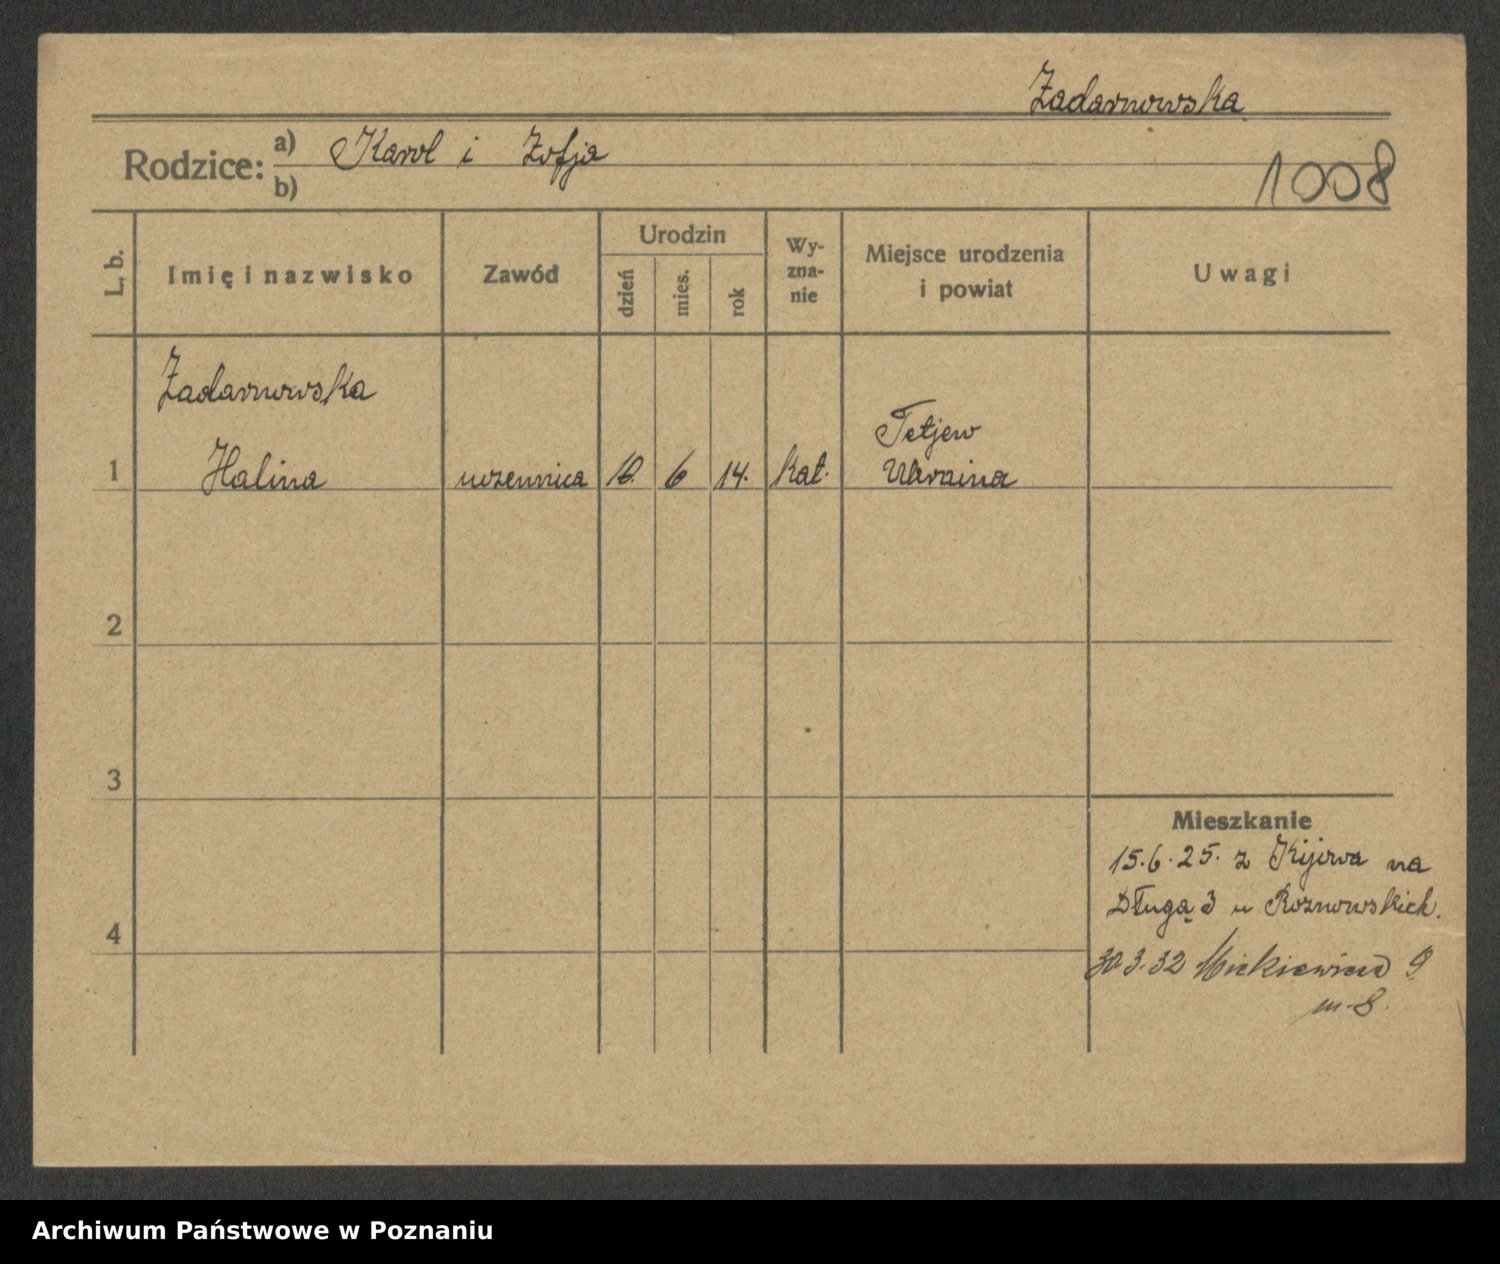 Zadarnowska
Rodzice: a) Karol i Zofja
b)
1008
L. b.
Imię i nazwisko
Zawód
Urodzin
dzień
mies.
rok
Wy-
zna-
nie
Miejsce urodzenia
i powiat
Uwagi
Zadarnowska
1 Halina uczennica 10. 6 14. kat. Tetjew
Ukraina
2
3
4
Mieszkanie
15.6.25. z Kijowa na
Długą 3 u Roznowskich.
30.3.32 Mickiewicza 9
m. 8.
Archiwum Państwowe w Poznaniu